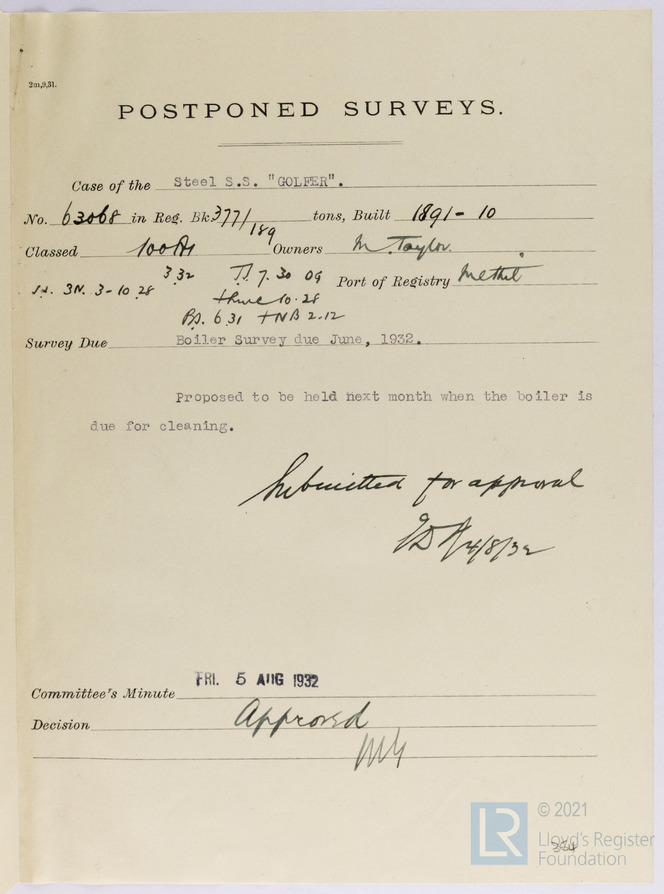 2m,9,31.
POSTPONED SURVEYS.
Case of the Steel S.S. "GOLFER".
No. 63068 in Reg. Bk 377/189 tons, Built 1891-10
Classed 100A1 Owners M. Taylor.
3.32 7.30 09 Port of Registry Methil
3N. 3-10.28
10.28
BS. 6.31 +NB 2.12
Survey Due Boiler Survey due June, 1932.
Proposed to be held next month when the boiler is
due for cleaning.
Submitted for approval
4/8/32
Committee's Minute FRI. 5 AUG 1932
Decision Approved
LR © 2021
Lloyd's Register
Foundation
364